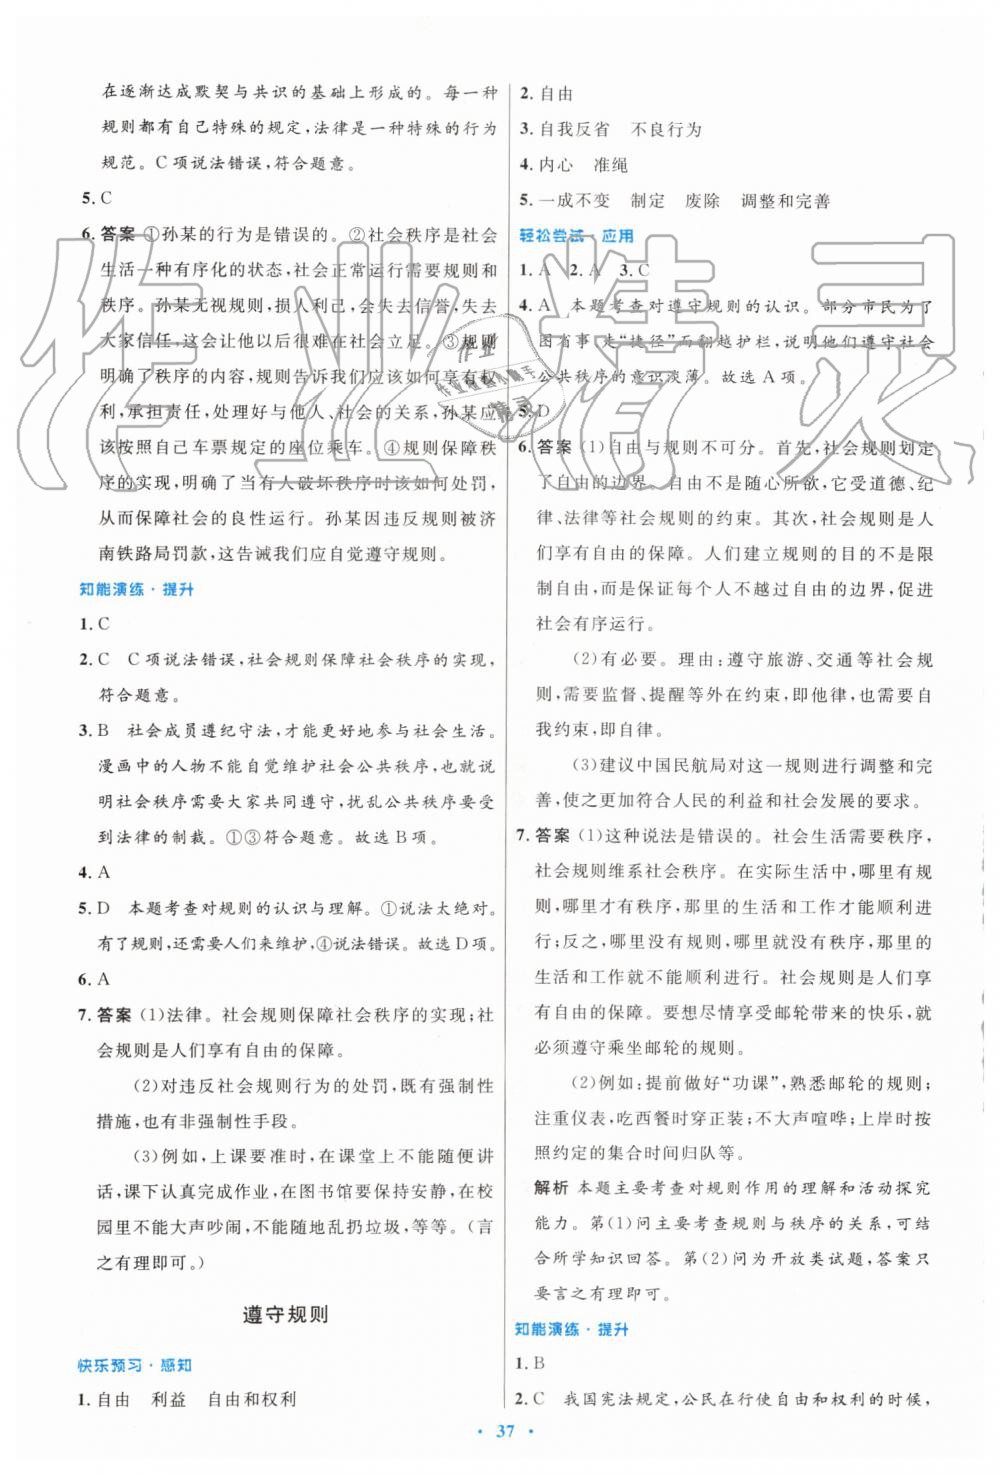 在逐渐达成默契与共识的基础上形成的。每一种
规则都有自己特殊的规定,法律是一种特殊的行为
规范。C项说法错误,符合题意。
5. C
6. 答案 ①孙某的行为是错误的。②社会秩序是社会
生活中一种有序化的状态,社会正常运行需要规则和
秩序。孙某无视规则,损人利己,会失去信誉,失去
大家信任,这会让他以后很难在社会立足。③规则
明确了秩序的内容,规则告诉我们应该如何享有权
利,承担责任,处理好与他人、社会的关系,孙某应
该按照自己车票规定的座位乘车。④规则保障秩
序的实现,明确了当有人破坏秩序时该如何处罚,
从而保障社会的良性运行。孙某因违反规则被济
南铁路局罚款,这告诫我们应自觉遵守规则。
知能演练·提升
1. C
2. C C项说法错误,社会规则保障社会秩序的实现,
符合题意。
3. B 社会成员遵纪守法,才能更好地参与社会生活。
漫画中的人物不能自觉维护社会公共秩序,也就说
明社会秩序需要大家共同遵守,扰乱公共秩序要受
到法律的制裁。①③符合题意。故选B项。
4. A
5. D 本题考查对规则的认识与理解。①说法太绝对。
有了规则,还需要人们来维护,④说法错误。故选D项。
6. A
7. 答案 (1)法律。社会规则保障社会秩序的实现;社
会规则是人们享有自由的保障。
(2)对违反社会规则行为的处罚,既有强制性
措施,也有非强制性手段。
(3)例如,上课要准时,在课堂上不能随便讲
话,课下认真完成作业,在图书馆要保持安静,在校
园里不能大声吵闹,不能随地乱扔垃圾,等等。(言
之有理即可。)
遵守规则
快乐预习·感知
1. 自由 利益 自由和权利
2. 自由
3. 自我反省 不良行为
4. 内心 准绳
5. 一成不变 制定 废除 调整和完善
轻松尝试·应用
1. A 2. A 3. C
4. A 本题考查对遵守规则的认识。部分市民为了
图省事走“捷径”而翻越护栏,说明他们遵守社会
公共秩序的意识淡薄。故选A项。
5. D
6. 答案 (1)自由与规则不可分。首先,社会规则划定
了自由的边界。自由不是随心所欲,它受道德、纪
律、法律等社会规则的约束。其次,社会规则是人
们享有自由的保障。人们建立规则的目的不是限
制自由,而是保证每个人不越过自由的边界,促进
社会有序运行。
(2)有必要。理由:遵守旅游、交通等社会规
则,需要监督、提醒等外在约束,即他律,也需要自
我约束,即自律。
(3)建议中国民航局对这一规则进行调整和完
善,使之更加符合人民的利益和社会发展的要求。
7. 答案 (1)这种说法是错误的。社会生活需要秩序,
社会规则维系社会秩序。在实际生活中,哪里有规
则,哪里才有秩序,那里的生活和工作才能顺利进
行;反之,哪里没有规则,哪里就没有秩序,那里的
生活和工作就不能顺利进行。社会规则是人们享
有自由的保障。要想尽情享受邮轮带来的快乐,就
必须遵守乘坐邮轮的规则。
(2)例如:提前做好“功课”,熟悉邮轮的规则;
注重仪表,吃西餐时穿正装;不大声喧哗;上岸时按
照约定的集合时间归队等。
解析 本题主要考查对规则作用的理解和活动探究
能力。第(1)问主要考查规则与秩序的关系,可结
合所学知识回答。第(2)问为开放类试题,答案只
要言之有理即可。
知能演练·提升
1. B
2. C 我国宪法规定,公民在行使自由和权利的时候,
· 37 ·
作业精灵